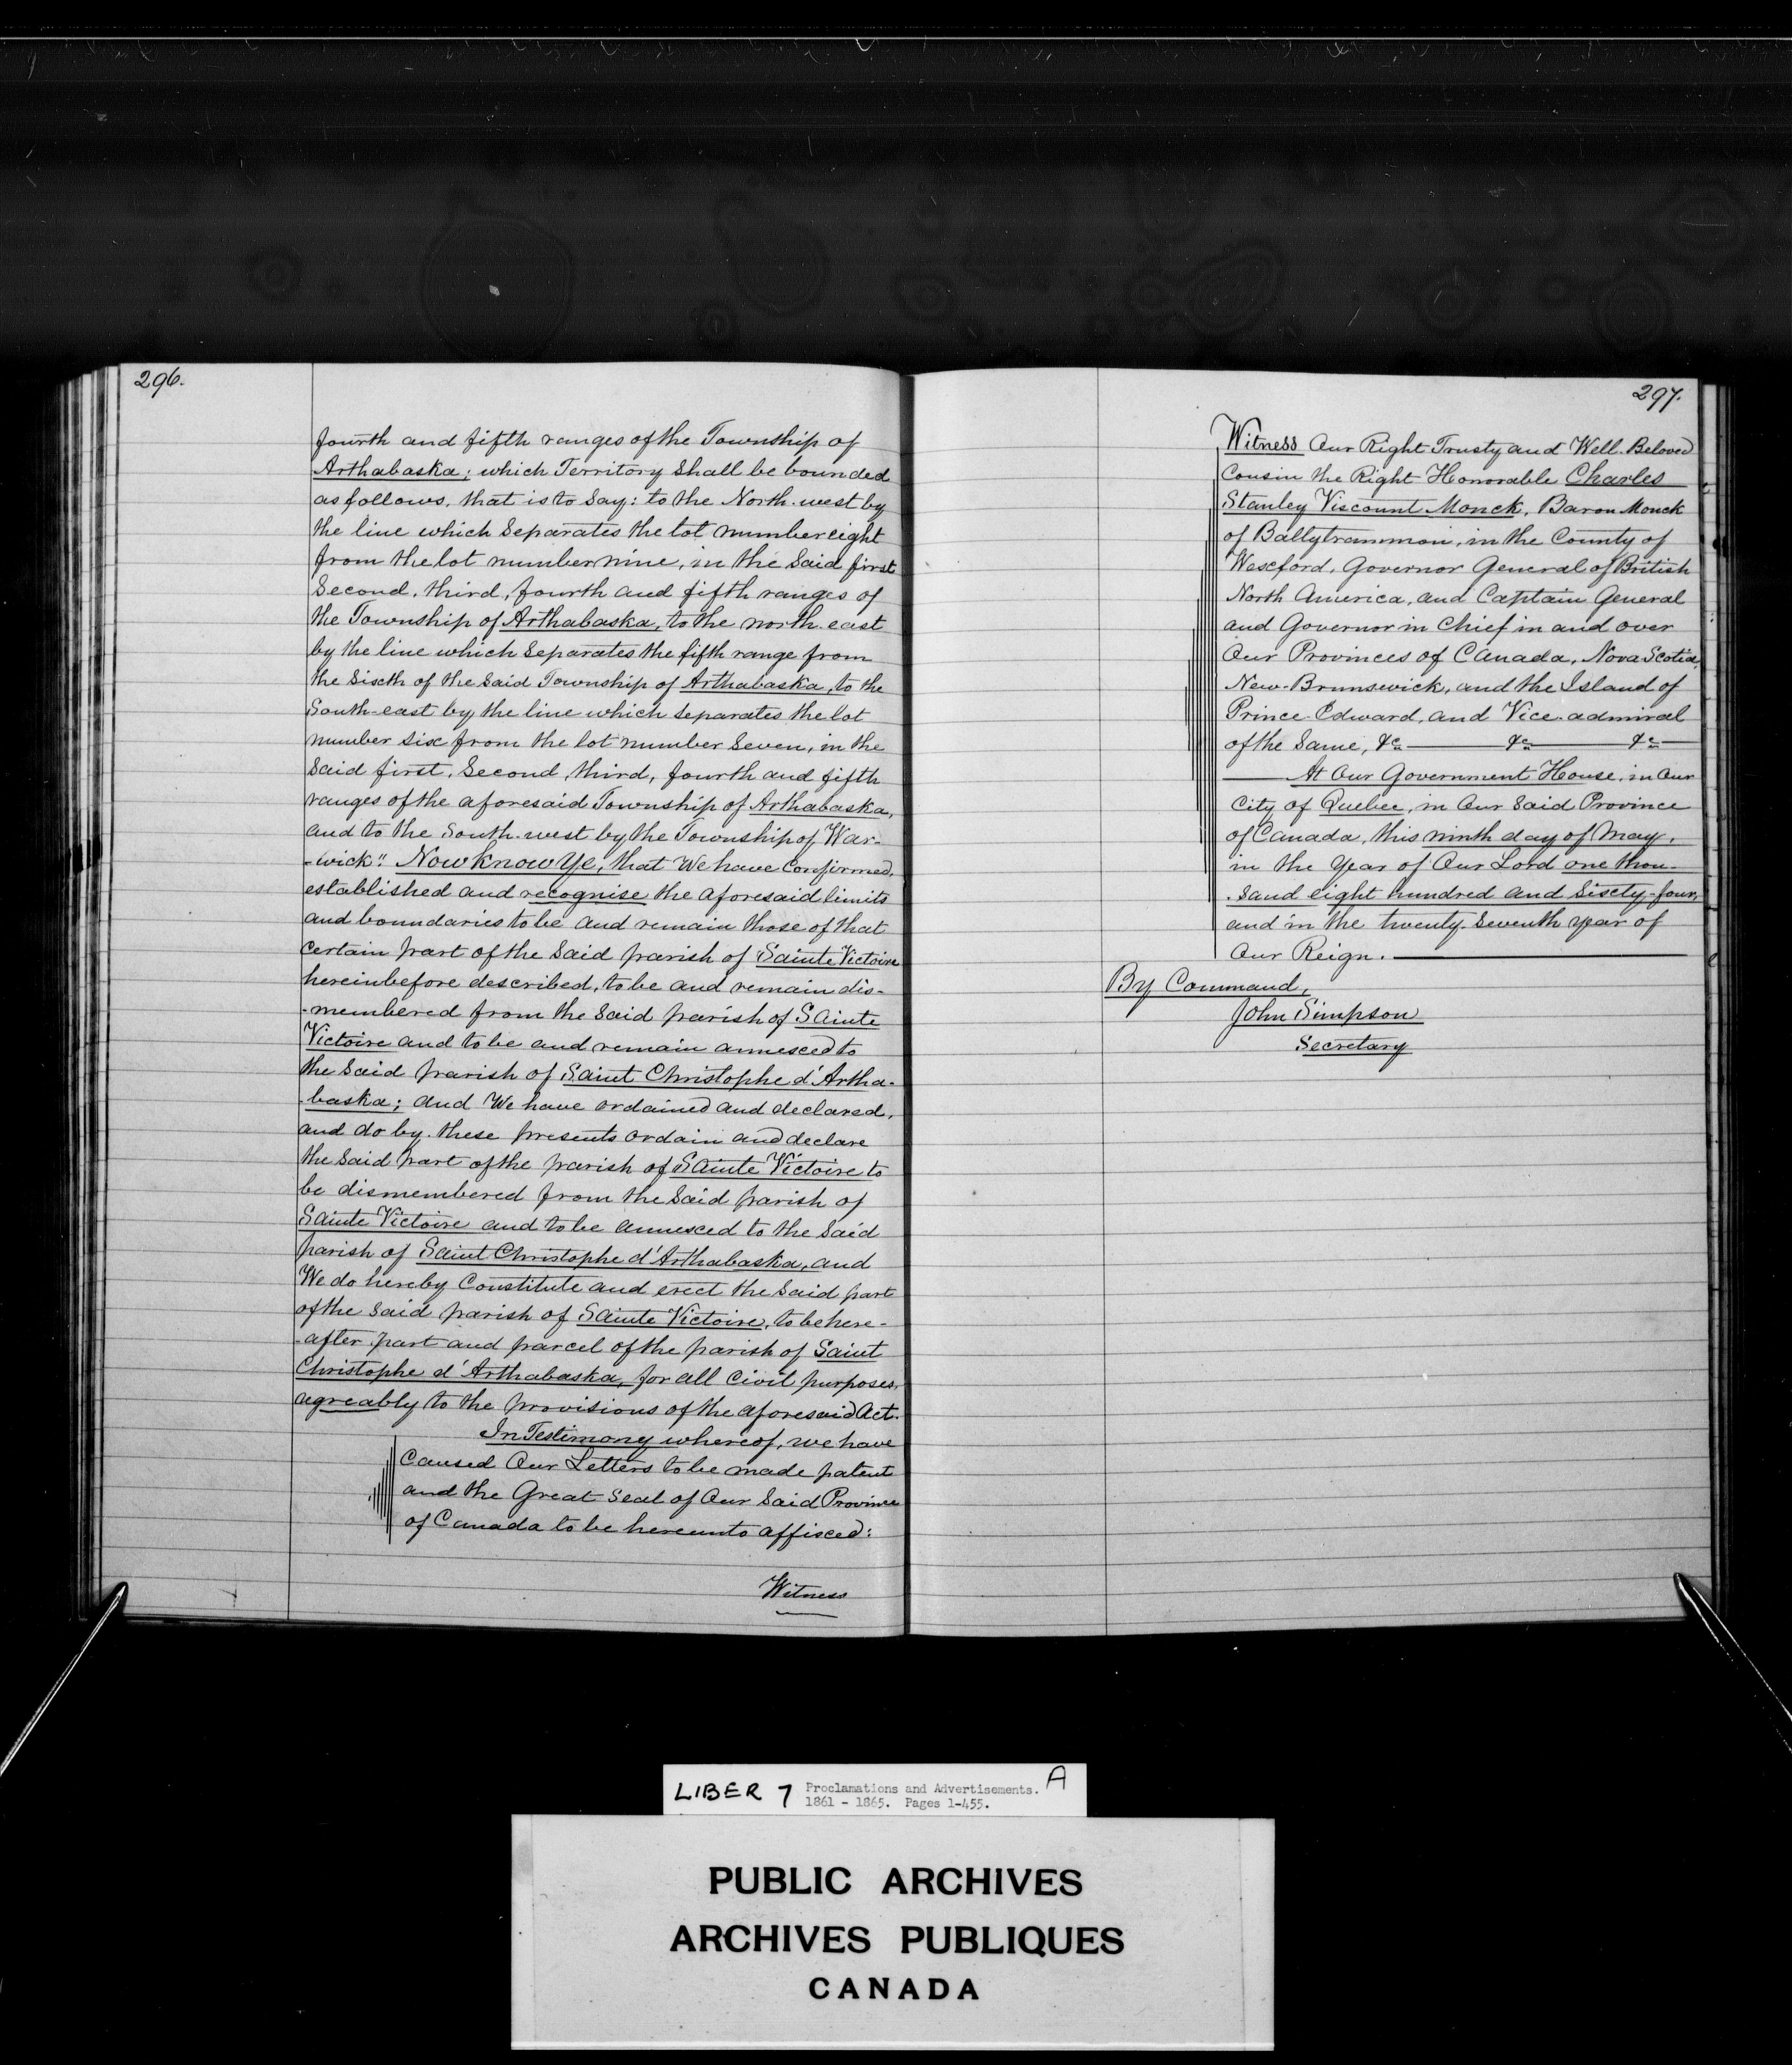 296.
fourth and fifth ranges of the Township of
Arthabaska; which Territory Shall be bounded
as follows, that is to Say: to the North-west by
the line which Separates the lot number eight
from the lot number nine, in the Said first
Second, third, fourth and fifth ranges of
the Township of Arthabaska, to the north-east
by the line which Separates the fifth range from
the Sixth of the Said Township of Arthabaska, to the
South-east by the line which Separates the lot
number six from the lot number Seven, in the
Said first, Second, third, fourth and fifth
ranges of the aforesaid Township of Arthabaska,
and to the South-west by the Township of War-
-wick". Now know Ye, that We have Confirmed,
established and recognise the aforesaid limits
and boundaries to be and remain those of that
certain part of the Said parish of Sainte Victoire
hereinbefore described, to be and remain dis-
-membered from the Said parish of Sainte
Victoire and to be and remain annexed to
the Said parish of Saint Christophe d'Artha-
-baska; and We have ordained and declared,
and do by these presents ordain and declare
the Said part of the parish of Sainte Victoire to
be dismembered from the Said parish of
Sainte Victoire and to be annexed to the Said
parish of Saint Christophe d'Arthabaska, and
We do hereby Constitute and erect the Said part
of the Said parish of Sainte Victoire, to be here-
-after part and parcel of the parish of Saint
Christophe d'Arthabaska, for all Civil purposes,
agreably to the provisions of the aforesaid Act.
In Testimony whereof, we have
Caused Our Letters to be made patent
and the Great Seal of Our Said Province
of Canada to be hereunto affixed:
Witness
297.
Witness Our Right Trusty and Well-Beloved
Cousin the Right Honorable Charles
Stanley Viscount Monck, Baron Monck
of Ballytrammon, in the County of
Wexford, Governor General of British
North America, and Captain General
and Governor in Chief in and over
Our Provinces of Canada, Nova Scotia,
New-Brunswick, and the Island of
Prince-Edward, and Vice-admiral
of the Same, &c &c &c
At Our Government House, in Our
City of Quebec, in Our Said Province
of Canada, this ninth day of May,
in the Year of Our Lord one thou-
-sand eight hundred and Sixty-four,
and in the twenty-Seventh year of
Our Reign.
By Command,
John Simpson
Secretary
LIBER 7 Proclamations and Advertisements. A
1861 - 1865. Pages 1-455.
PUBLIC ARCHIVES
ARCHIVES PUBLIQUES
CANADA